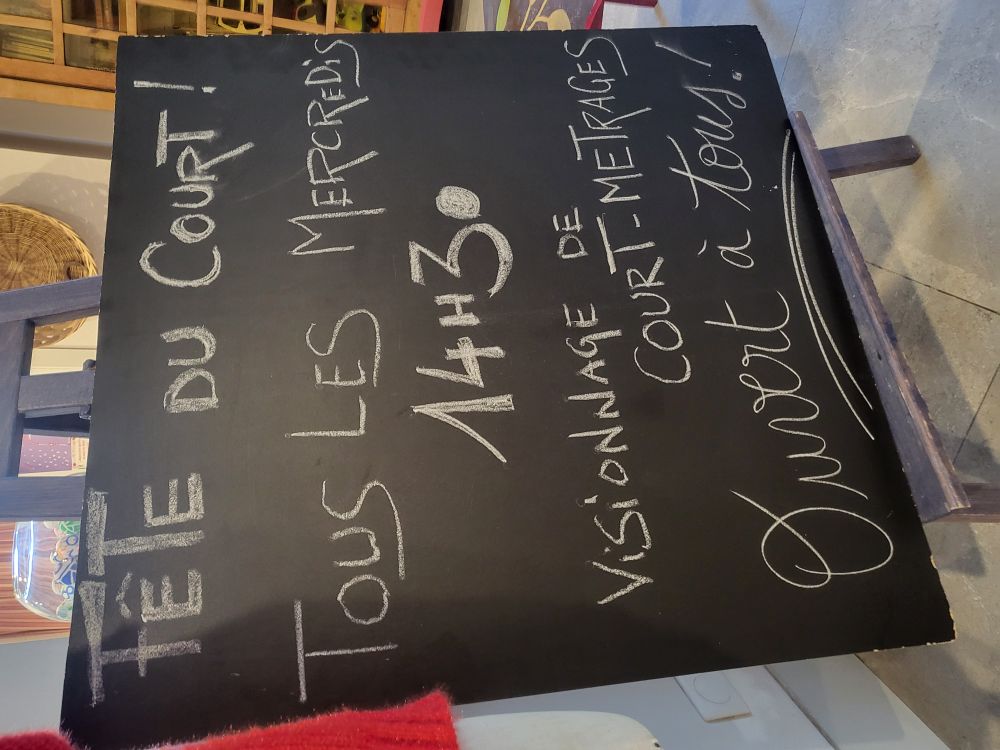 FÊTE DU COURT !
TOUS LES MERCREDiS
14H30
ViSiONNAGE DE
COURT-METRAGES
Ouvert à tous !